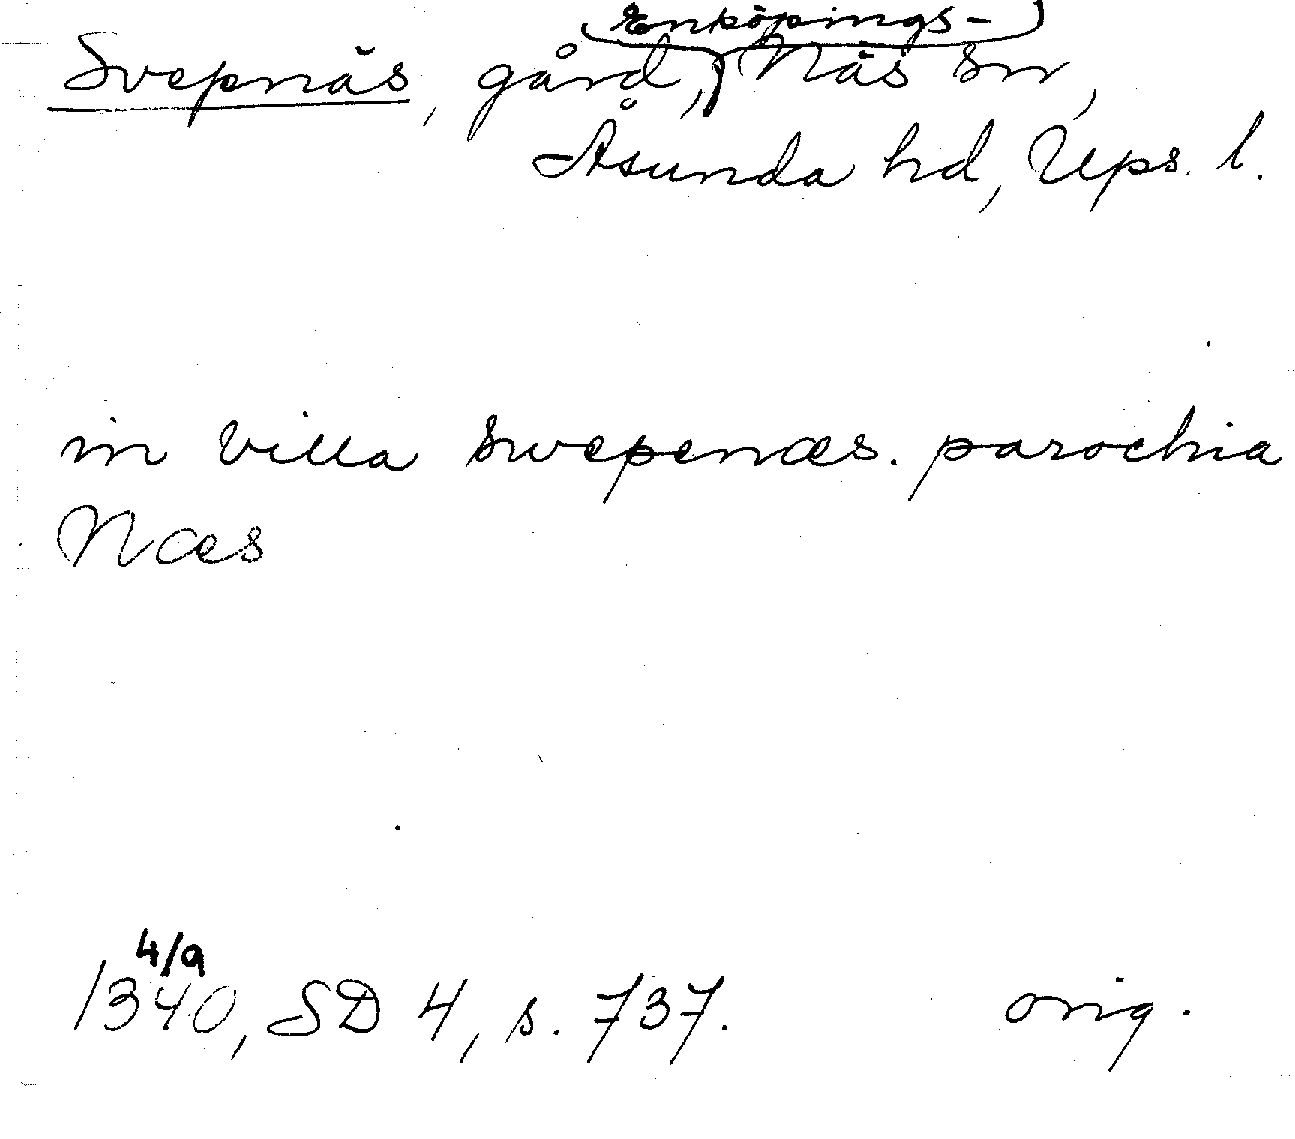 Enköpings-
Svepnäs, gård, Näs sn,
Åsunda hd, Ups. l.
in villa swepenæs. parochia
Næs
4/9
1340, SD 4, s. 737. orig.